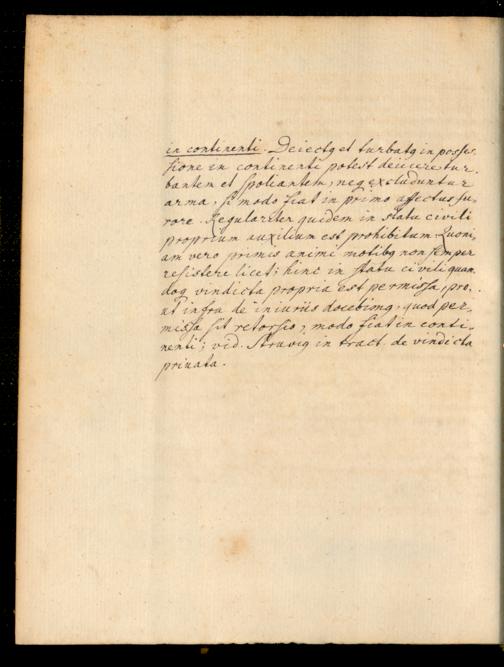 in continenti. Deiectq et turbatq in posses-
sione in continenti potest deiicere tur-
bantem et spoliantem, neq excluduntur
arma, si modo fiat in primo affectus fu-
rore. Regulariter quidem in statu civili
proprium auxilium est prohibitum. Quoni-
am vero primis animi motibq non semper
resistere licet; hinc in statu civili quan-
doq vindicta propria est permissa, pro-
ut infra de iniuriis docebimq, quod per-
missa sit retorsio, modo fiat in conti-
nenti; vid. Struviq in tract. de vindicta
privata.